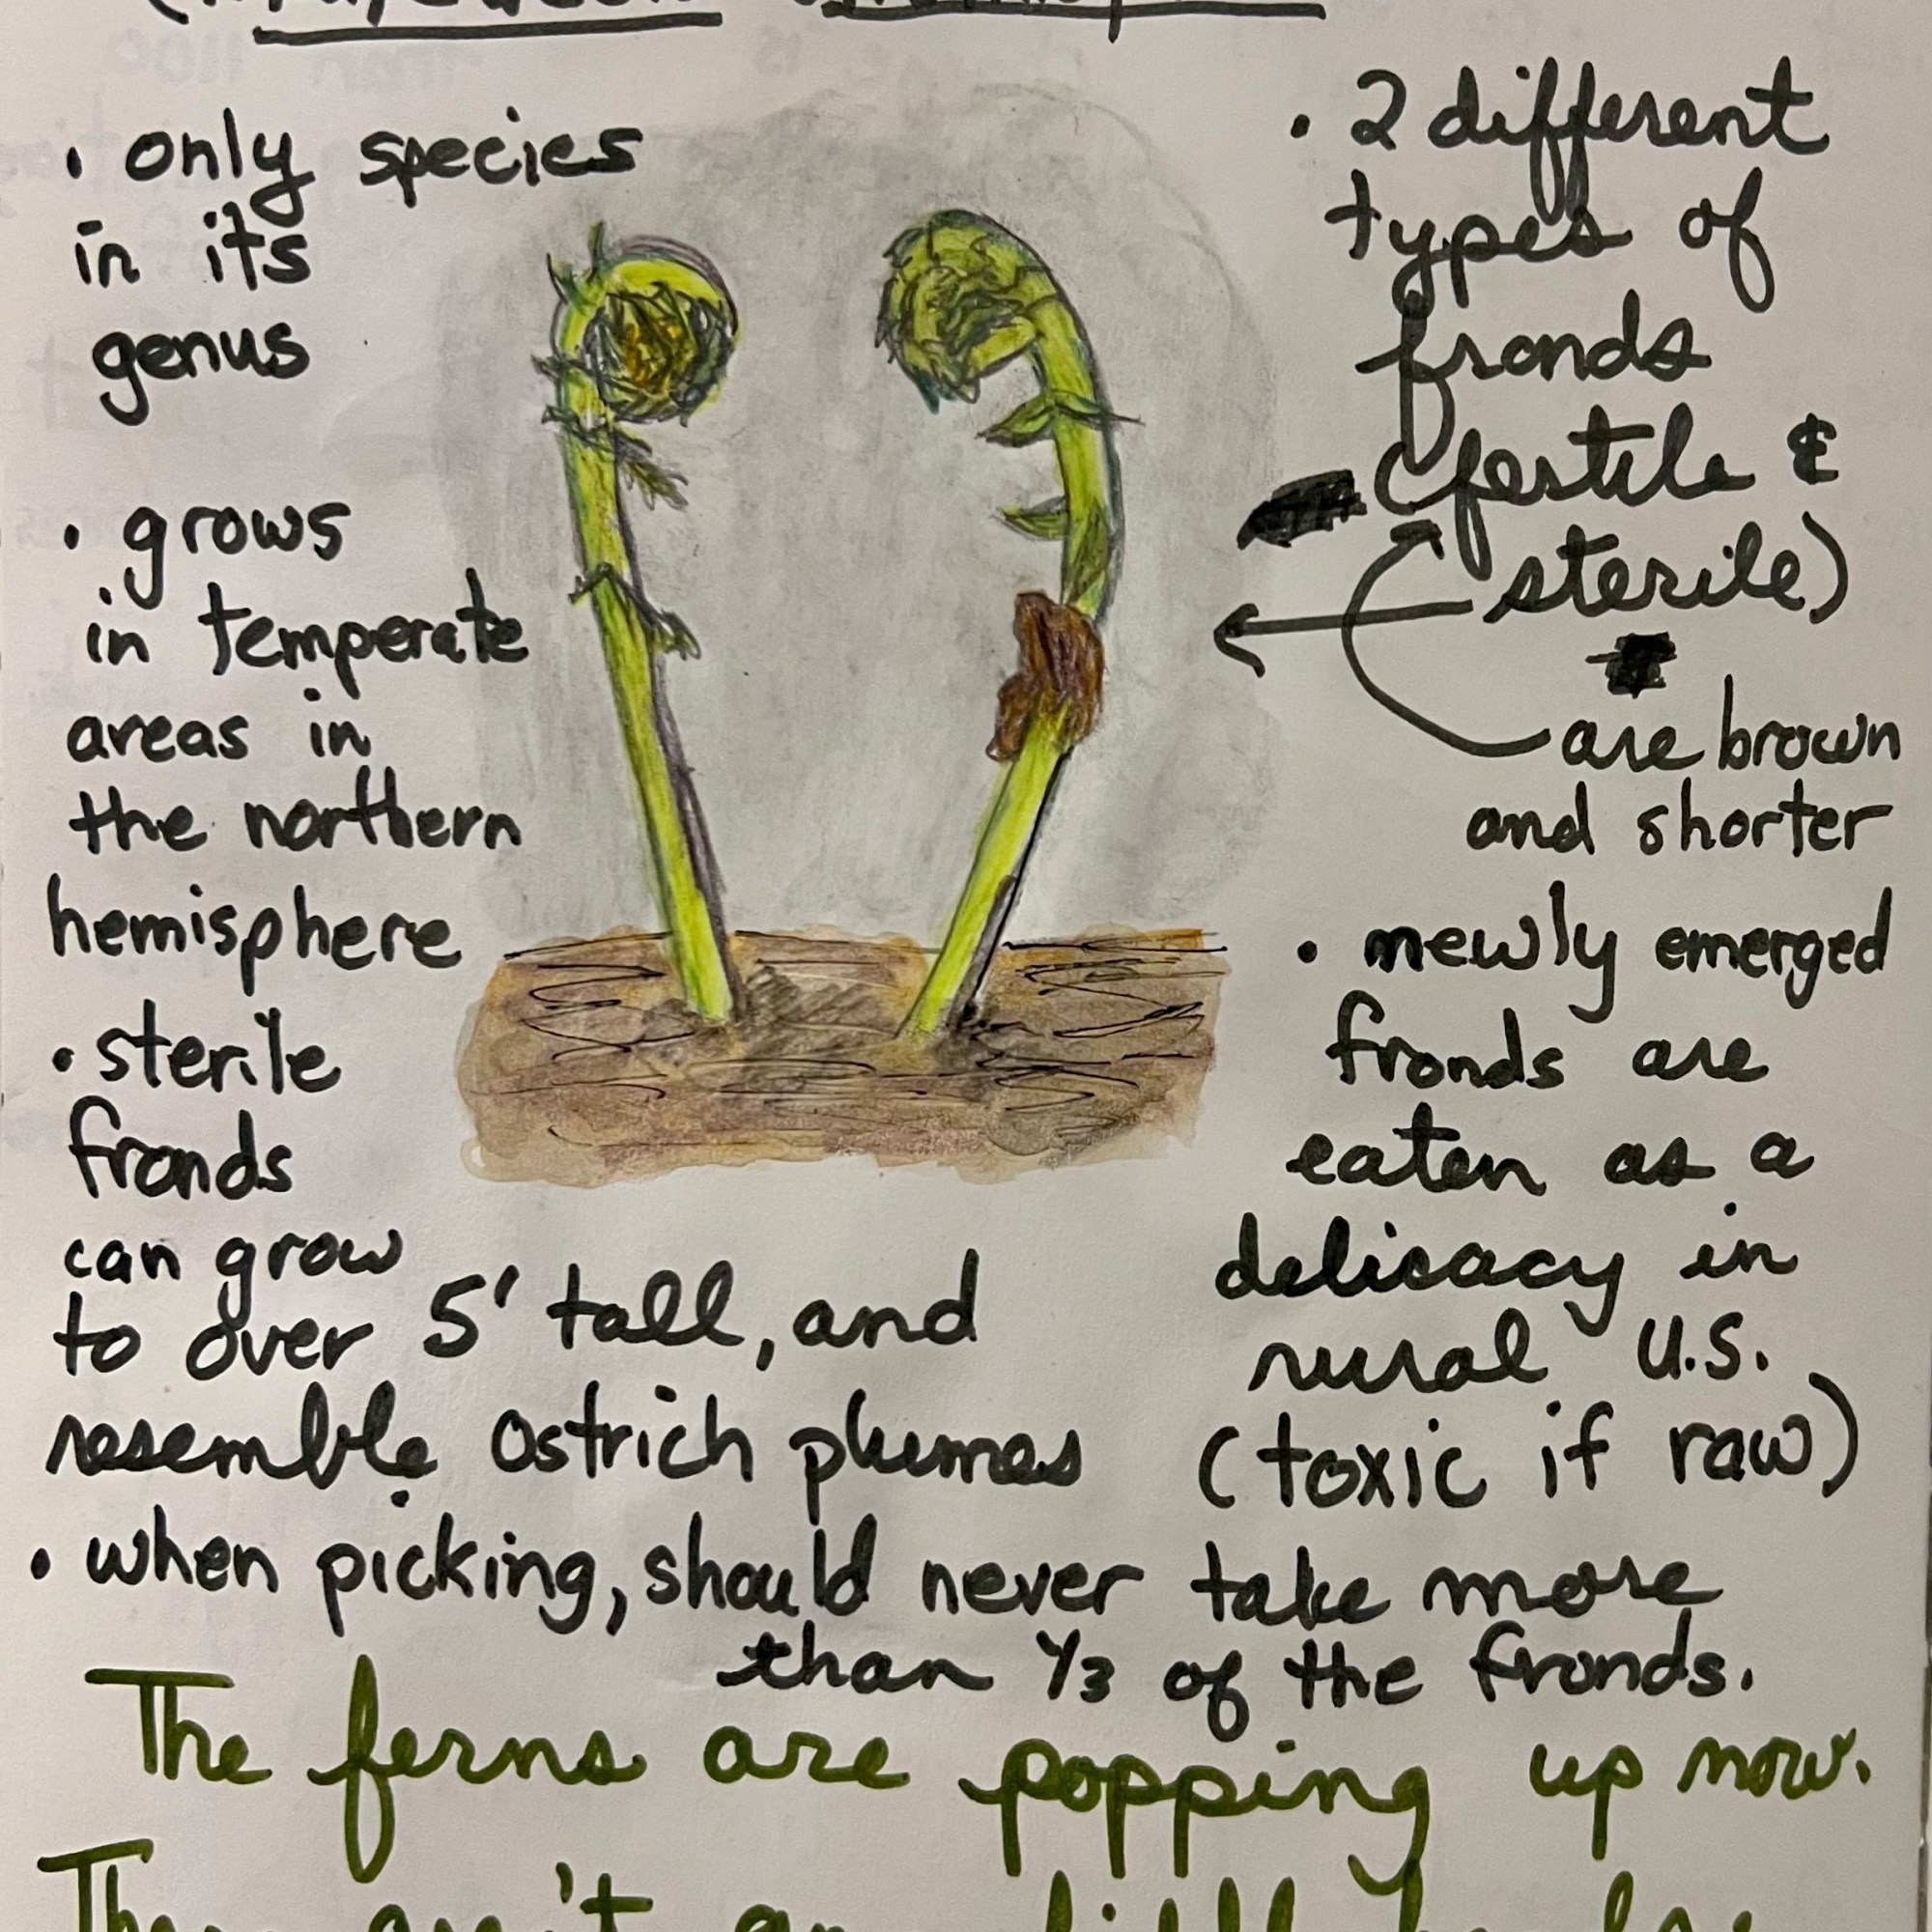 • only species
in its
genus
• grows
in temperate
areas in
the northern
hemisphere
• sterile
fronds
can grow
to over 5' tall, and
resemble ostrich plumes
• 2 different
types of
fronds
(fertile &
sterile)
are brown
and shorter
• newly emerged
fronds are
eaten as a
delicacy in
rural U.S.
(toxic if raw)
• when picking, should never take more
than 1/3 of the fronds.
The ferns are popping up now.